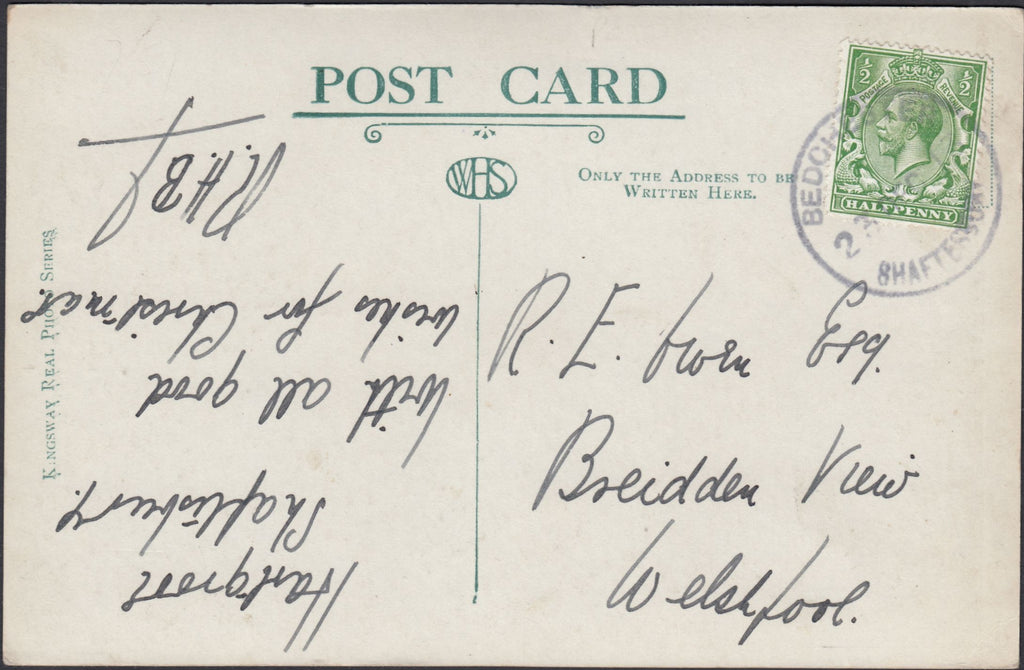 POST CARD
WHS
ONLY THE ADDRESS TO BE
WRITTEN HERE.
½ ½
POSTAGE REVENUE
HALFPENNY
BEDCH
2
SHAFTESBURY
KINGSWAY REAL PHOTO SERIES
R. E. Owen Esq.
Breidden View
Welshpool.
Hartgrove
Shaftesbury.
With all good
wishes for Christmas.
R.H.B